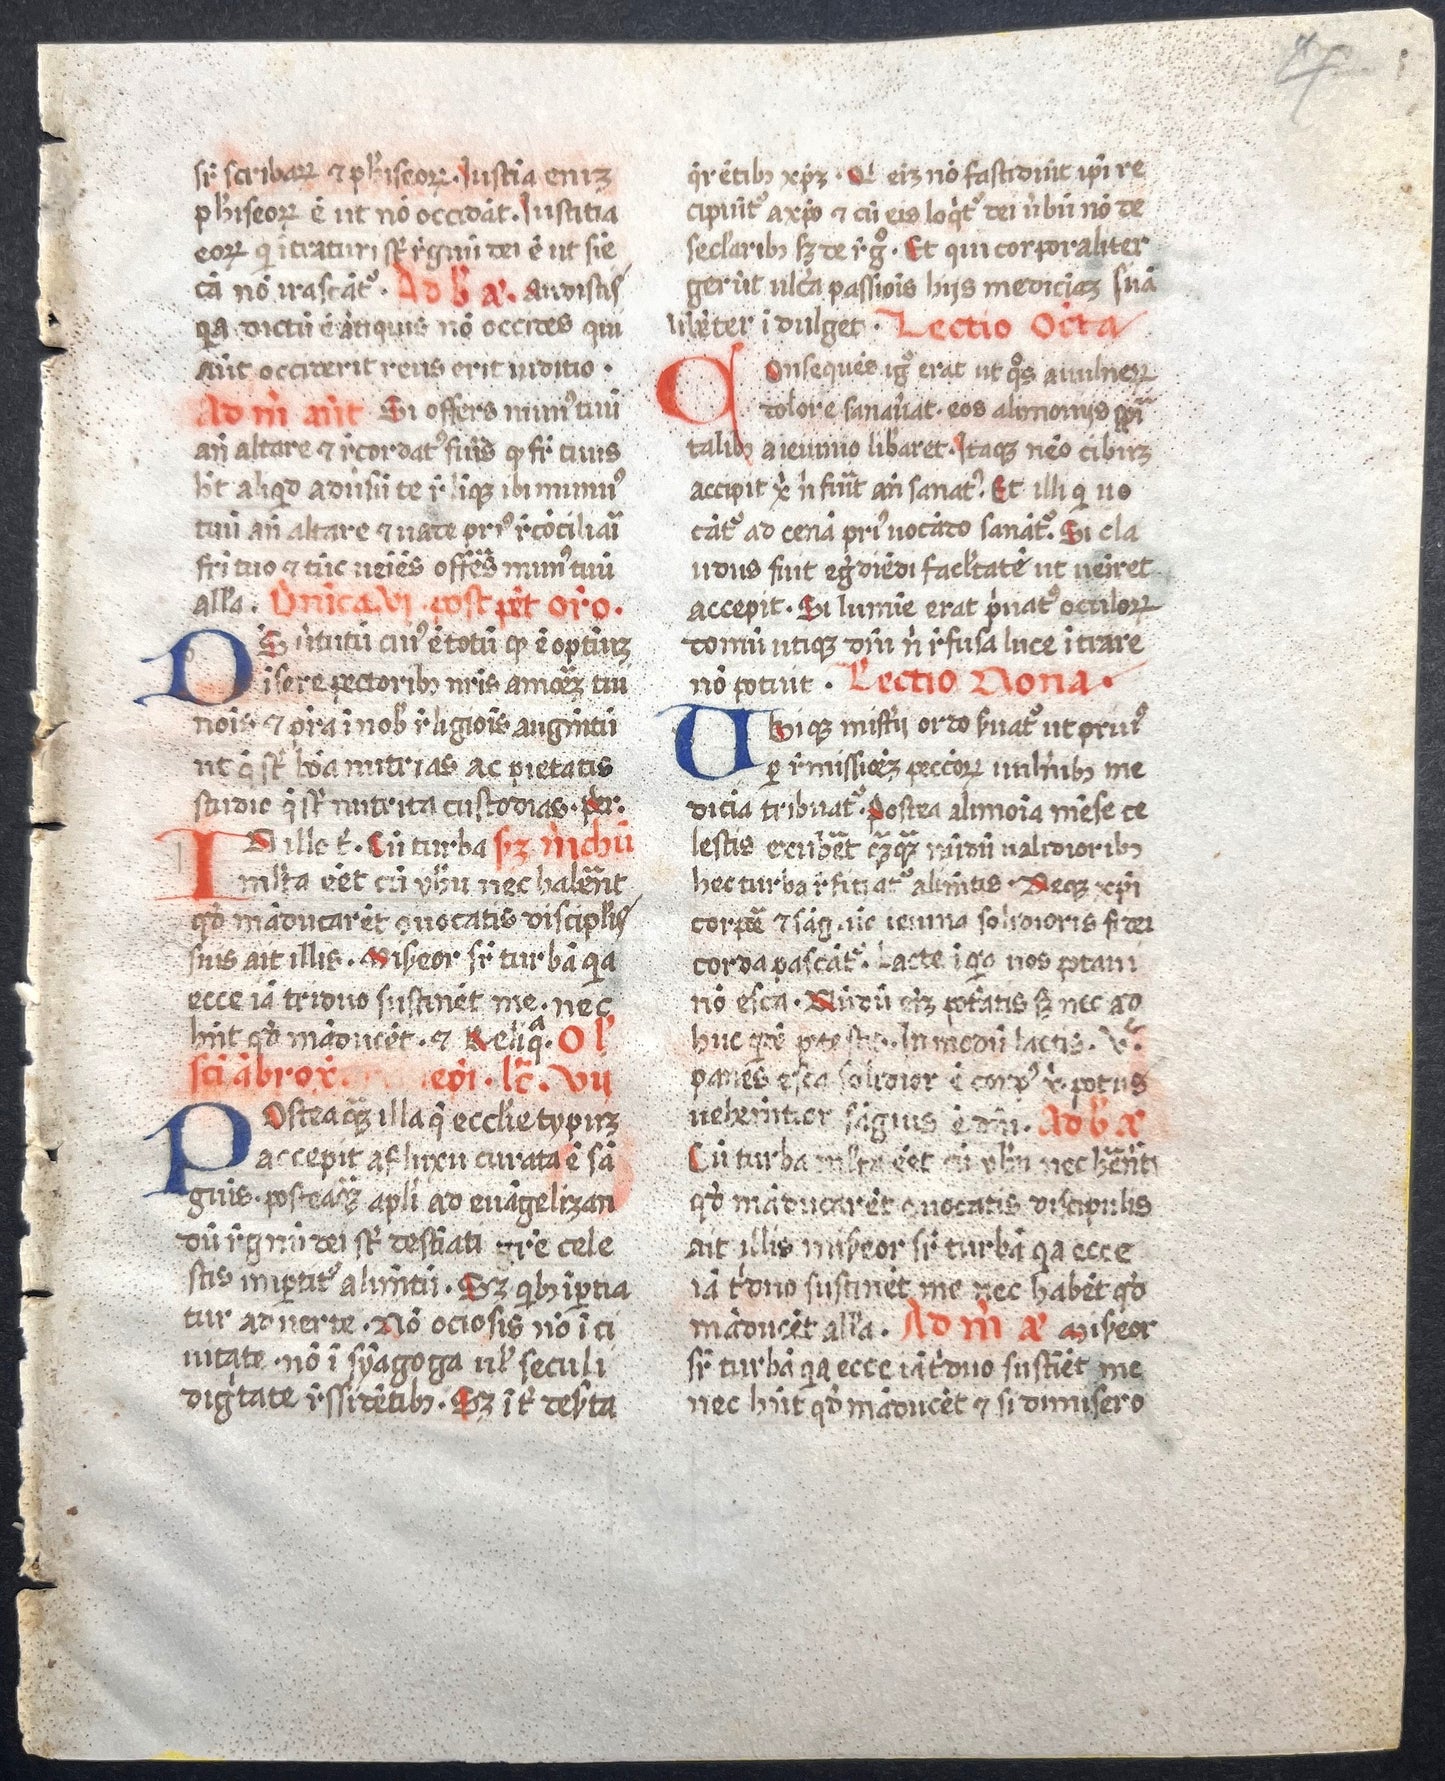 sr̄ scribaꝝ ⁊ ph̄iseoꝝ. Iustia enіꝫ
ph̄iseoꝝ ē ut nō occidāt. Iustitia
eoꝝ q̄ ītraturi st̄ r̄gnū dei ē ut sīe
cā nō irascāt᷒. Ad b̄ a᷒. Audistis
qa dictū ē ātiquis nō occides qui
aūt occiderit reus erit iuditio.
Ad m̄ ant̄ Si offers mun᷒ tuū
an̄ altare ⁊ r̄cordat᷒ fūis qꝫ fr̄ tuus
h̄t aliqd adūsū te r̄liqꝫ ibi mun᷒
tuū an̄ altare ⁊ uade pri᷒ r̄cōciliai
fr̄i tuo ⁊ tūc ueiēs offēs mun᷒ tuū
alla. Dn̄ica. VI. post pēt or̄o.
DS ūtutū cui᷒ ē totū qꝫ ē optīꝫ
īsere pectoribꝫ nr̄is amōꝫ tui
nois ⁊ pr̄a ī nob̄ r̄ligiois augm̄tū
ut q̄ st̄ bōa nutrias ac pietatis
studio q̄ st̄ nutrita custodias. Per.
IN illo t̄. Cū turba sꝫ m̄chū
ml̄ta eēt cū yh̄u nec hab̄ent
qd̄ māducarēt ꝯuocatis discipl̄is
suis ait illis. Mis̄eor sr̄ turbā qa
ecce iā triduo sustinēt me. nec
hn̄t qd̄ māducēt. ⁊ Reliq̄. Ol̄
sc̄i ābrox. ep̄i. lc̄. VII
POsteaq̄ꝫ illa q̄ eccl̄ie typuꝫ
accepit a fluxu curata ē sā
guis. posteaq̄ꝫ apl̄i ad euāgelizan
dū r̄gnū dei st̄ destīati gr̄e cele
stis impertit᷒ alim̄tū. Sꝫ qbꝫ īptia
tur aduerte. Nō ociosis nō ī ci
uitate. nō ī syāgoga ul̄ seculi
diḡtate r̄ssidētibꝫ. Sꝫ īt̄ des̄ta
q̄rētibꝫ xp̄ꝫ. Q eīꝫ nō fastidiūt ip̄i re
cipiūt᷒ a xp̄o ⁊ cū eis loq̄t᷒ dei ūbū nō de
secl̄aribꝫ sꝫ de r̄go. Et qui corporaliter
gerūt ulc̄a passiōis hijs medicīaꝫ suā
libēter īdulget. Lectio Octa
COnsequēs ig᷒ erat ut q̊s a uulneꝝ
dolore sanau̇at. eos alimonijs sp̄i
talibꝫ a ieiunio lib̄aret. Itaqꝫ nēo cibuꝫ
accipit x̄ n̄ fuīt an̄ sanat᷒. Et illi q̄ uo
cāt᷒ ad cenā pri᷒ uocādo sanāt᷒. Si cla
udus fuit eg̊diēdi facl̄tatē ut ueiret
accepit. Si lumīe erat p̄uat᷒ oculoꝝ
domū utiqꝫ dn̄i n̄ r̄fusa luce ītrare
nō potuit. Lectio Nona.
UBiqꝫ mist̄ij ordo s̄uat᷒ ut pri᷒
p r̄missiōeꝫ peccoꝝ uuln̄ibꝫ me
dicia tribuat᷒. Postea alimoia mēse ce
lestis exub̄et q̄ꝫq̄ꝫ nūdū ualidioribꝫ
hec turba r̄ficiat᷒ alim̄tis. Neqꝫ xp̄i
corpe ⁊ sāg.uīe ieiuna solidioris fidei
corda pascāt᷒. Lacte īqo uos potaui
nō esca. Nūdū eīꝫ potatis sꝫ nec ad
huc qdē potestis. In modū lactis. V.
panes esca solidior ē corp᷒ x̄. potus
uehem̄tior sāguis ē dn̄i. Ad b̄ a᷒
Cū turba ml̄ta eēt cū yh̄u nec hēnt
qd̄ māducarēt ꝯuocatis discipulis
ait illis mis̄eor sr̄ turbā qa ecce
iā t̄duo sustinēt me nec habēt qd̄
māducēt all̄a. Ad m̄ a᷒ Mis̄eor
sr̄ turbā qa ecce iā t̄duo sustīēt me
nec hn̄t qd̄ māducēt ⁊ si dimisero